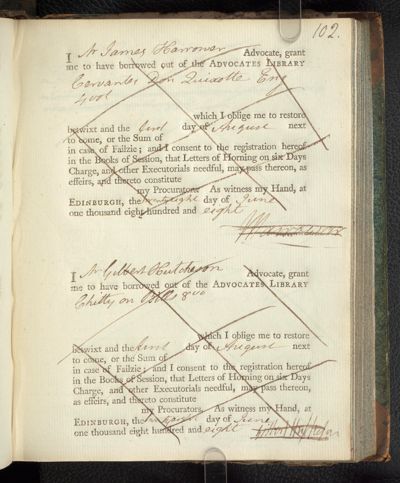 102.
I Mr James Harrower Advocate, grant
me to have borrowed out of the ADVOCATES LIBRARY
Cervantes Don Quixotte Eng
4 vol
which I oblige me to restore
betwixt and the first day of August next
to come, or the Sum of
in case of Failzie; and I consent to the registration hereof
in the Books of Session, that Letters of Horning on six Days
Charge, and other Executorials needful, may pass thereon, as
effeirs, and thereto constitute
my Procurators. As witness my Hand, at
EDINBURGH, the day of June
one thousand eight hundred and eight
I Mr Gilbert Hutcheson Advocate, grant
me to have borrowed out of the ADVOCATES LIBRARY
Chitty on Bills 8vo
which I oblige me to restore
betwixt and the first day of August next
to come, or the Sum of
in case of Failzie; and I consent to the registration hereof
in the Books of Session, that Letters of Horning on six Days
Charge, and other Executorials needful, may pass thereon,
as effeirs, and thereto constitute
my Procurators. As witness my Hand, at
EDINBURGH, the day of June
one thousand eight hundred and eight